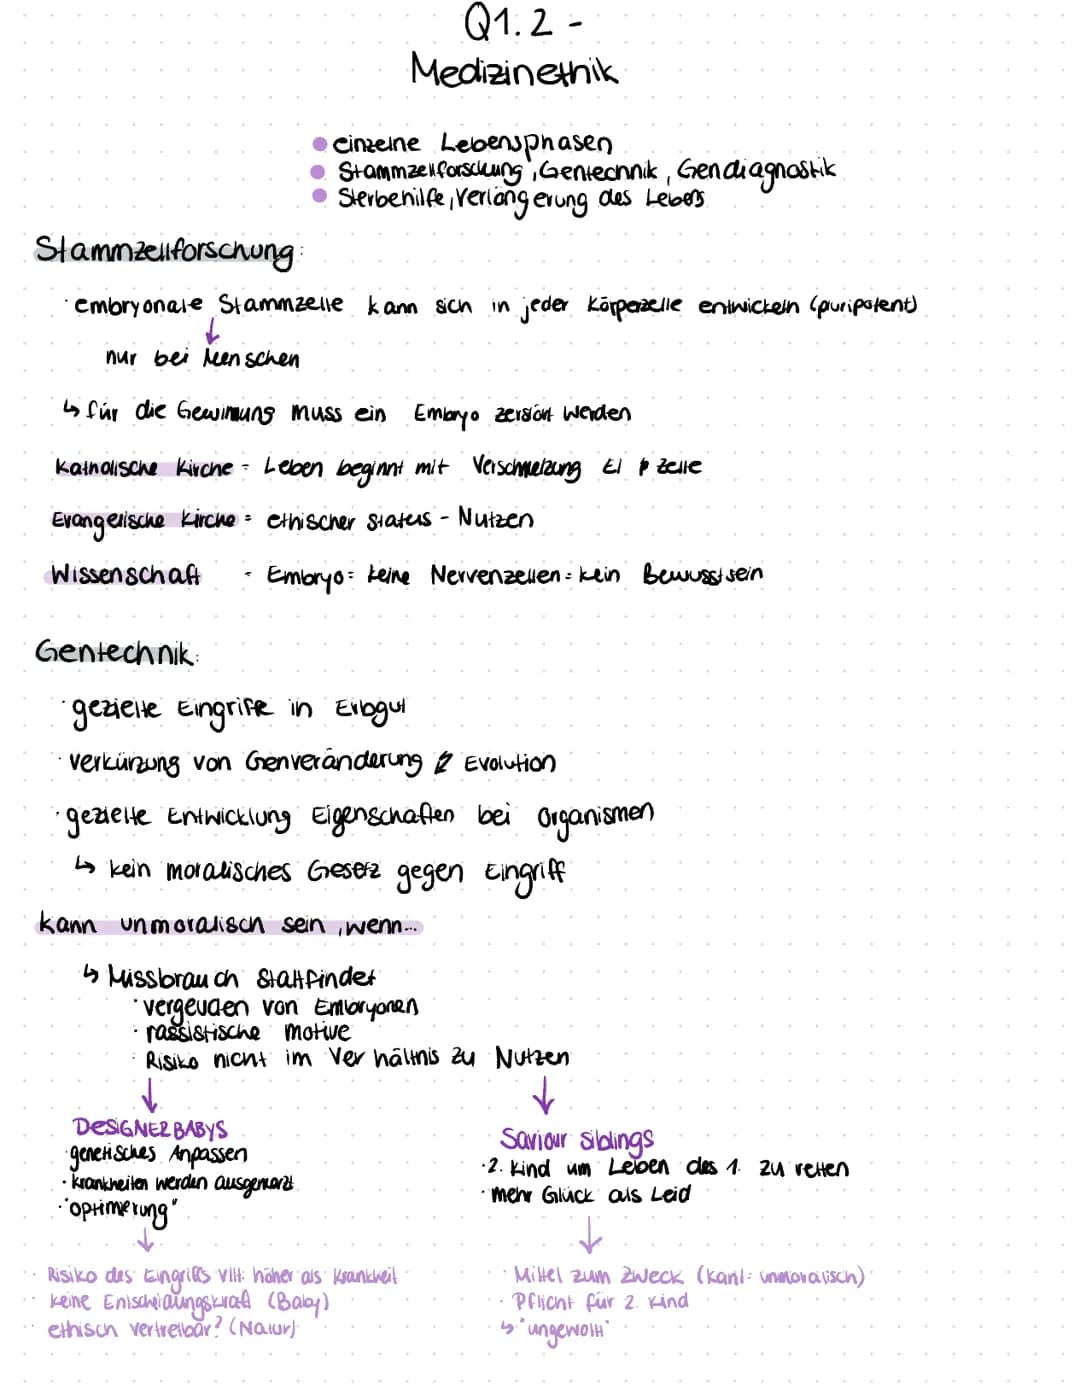 Q1.2 -
Medizinethik
• einzelne Lebensphasen
• Stammzellforschung, Gentechnik, Gendiagnostik
• Sterbehilfe, Verlängerung des Lebens
Stammzellforschung:
· embryonale Stammzelle kann sich in jeder Körperzelle entwickeln (puripotent)
↓
nur bei Menschen
↳ für die Gewinnung muss ein Embryo zerstört werden
Katholische Kirche - Leben beginnt mit Verschmelzung Ei zelle
Evangelische Kirche = ethischer status - Nutzen
Wissenschaft - Embryo = keine Nervenzellen = kein Bewusstsein
Gentechnik:
· gezielte Eingriffe in Erbgut
· verkürzung von Genveränderung Evolution
· gezielte Entwicklung Eigenschaften bei Organismen
↳ kein moralisches Gesetz gegen Eingriff
kann unmoralisch sein, wenn...
↳ Missbrauch stattfindet
· vergeuden von Embryonen
· rassistische motive
· Risiko nicht im Verhältnis zu Nutzen
↓ ↓
DESIGNERBABYS
· genetisches Anpassen
· krankheiten werden ausgemerzt
· "optimerung"
↓
· Risiko des Eingriffs vllt. höher als Krankheit
· keine Entscheidungskraft (Baby)
· ethisch vertretbar? (Natur)
Saviour siblings
· 2. kind um Leben des 1. zu retten
· mehr Glück als Leid
↓
· Mittel zum Zweck (Kant: unmoralisch)
· Pflicht für 2. Kind
↳ "ungewollt"